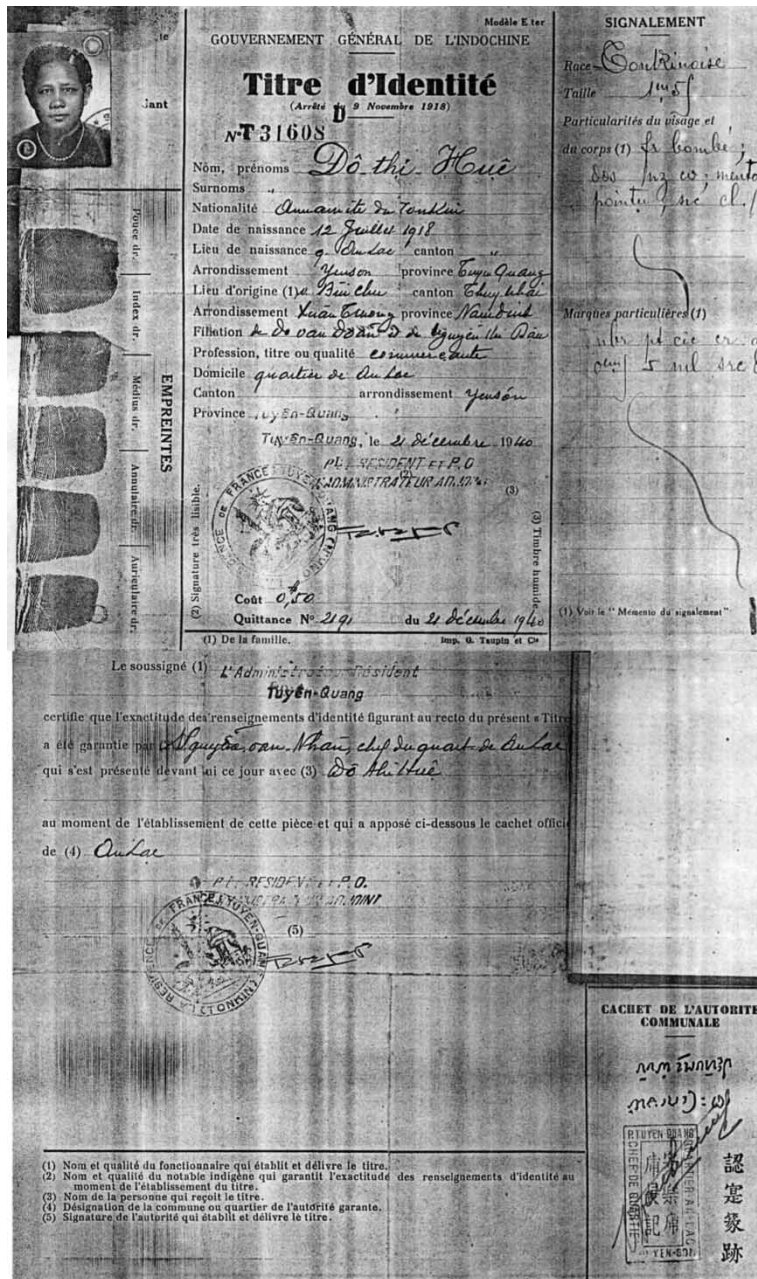 Modèle E ter
GOUVERNEMENT GÉNÉRAL DE L'INDOCHINE
Titre d'Identité
(Arrêté du 9 Novembre 1918)
D
N° T 31608
Nom, prénoms Đô thi Huê
Surnoms "
Nationalité Annamite du Tonkin
Date de naissance 12 Juillet 1918
Lieu de naissance q. An Lac canton "
Arrondissement Yenson province Tuyen Quang
Lieu d'origine (1) Bui Chu canton Thuy Nhai
Arrondissement Xuan Truong province Namdinh
Filiation de Do van Doan & de Nguyen thi
Profession, titre ou qualité commerçante
Domicile quartier de An Lac
Canton arrondissement Yensón
Province Tuyên-Quang
Tuyên-Quang, le 21 décembre 1940
P. LE RESIDENT ET P.O
L'ADMINISTRATEUR ADJOINT
(2)
(3)
Coût 0$,50
Quittance N° 2191 du 21 décembre 1940
(1) De la famille.
Imp. G. Taupin et Cie
(2) Signature très lisible.
(3) Timbre humide.
EMPREINTES
Pouce dr.
Index dr.
Médius dr.
Annulaire dr.
Auriculaire dr.
SIGNALEMENT
Race Tonkinoise
Taille 1m5
Particularités du visage et
du corps (1) fr bombé ;
dos nz cv ; mento
pointu
Marques particulières (1)
(1) Voir le "Mémento du signalement"
Le soussigné (1) L'Administrateur Résident
Tuyên-Quang
certifie que l'exactitude des renseignements d'identité figurant au recto du présent « Titre
a été garantie par Nguyên van Nhân, chef du quart. de An Lac
qui s'est présenté devant lui ce jour avec (3) Đô thi Huê
au moment de l'établissement de cette pièce et qui a apposé ci-dessous le cachet offici
de (4) An Lac
P. LE RESIDENT ET P.O.
L'ADMINISTRATEUR ADJOINT
(5)
CACHET DE L'AUTORITÉ
COMMUNALE
P. TUYEN-QUANG
YEN-SON
(1) Nom et qualité du fonctionnaire qui établit et délivre le titre.
(2) Nom et qualité du notable indigène qui garantit l'exactitude des renseignements d'identité au
moment de l'établissement du titre.
(3) Nom de la personne qui reçoit le titre.
(4) Désignation de la commune ou quartier de l'autorité garante.
(5) Signature de l'autorité qui établit et délivre le titre.